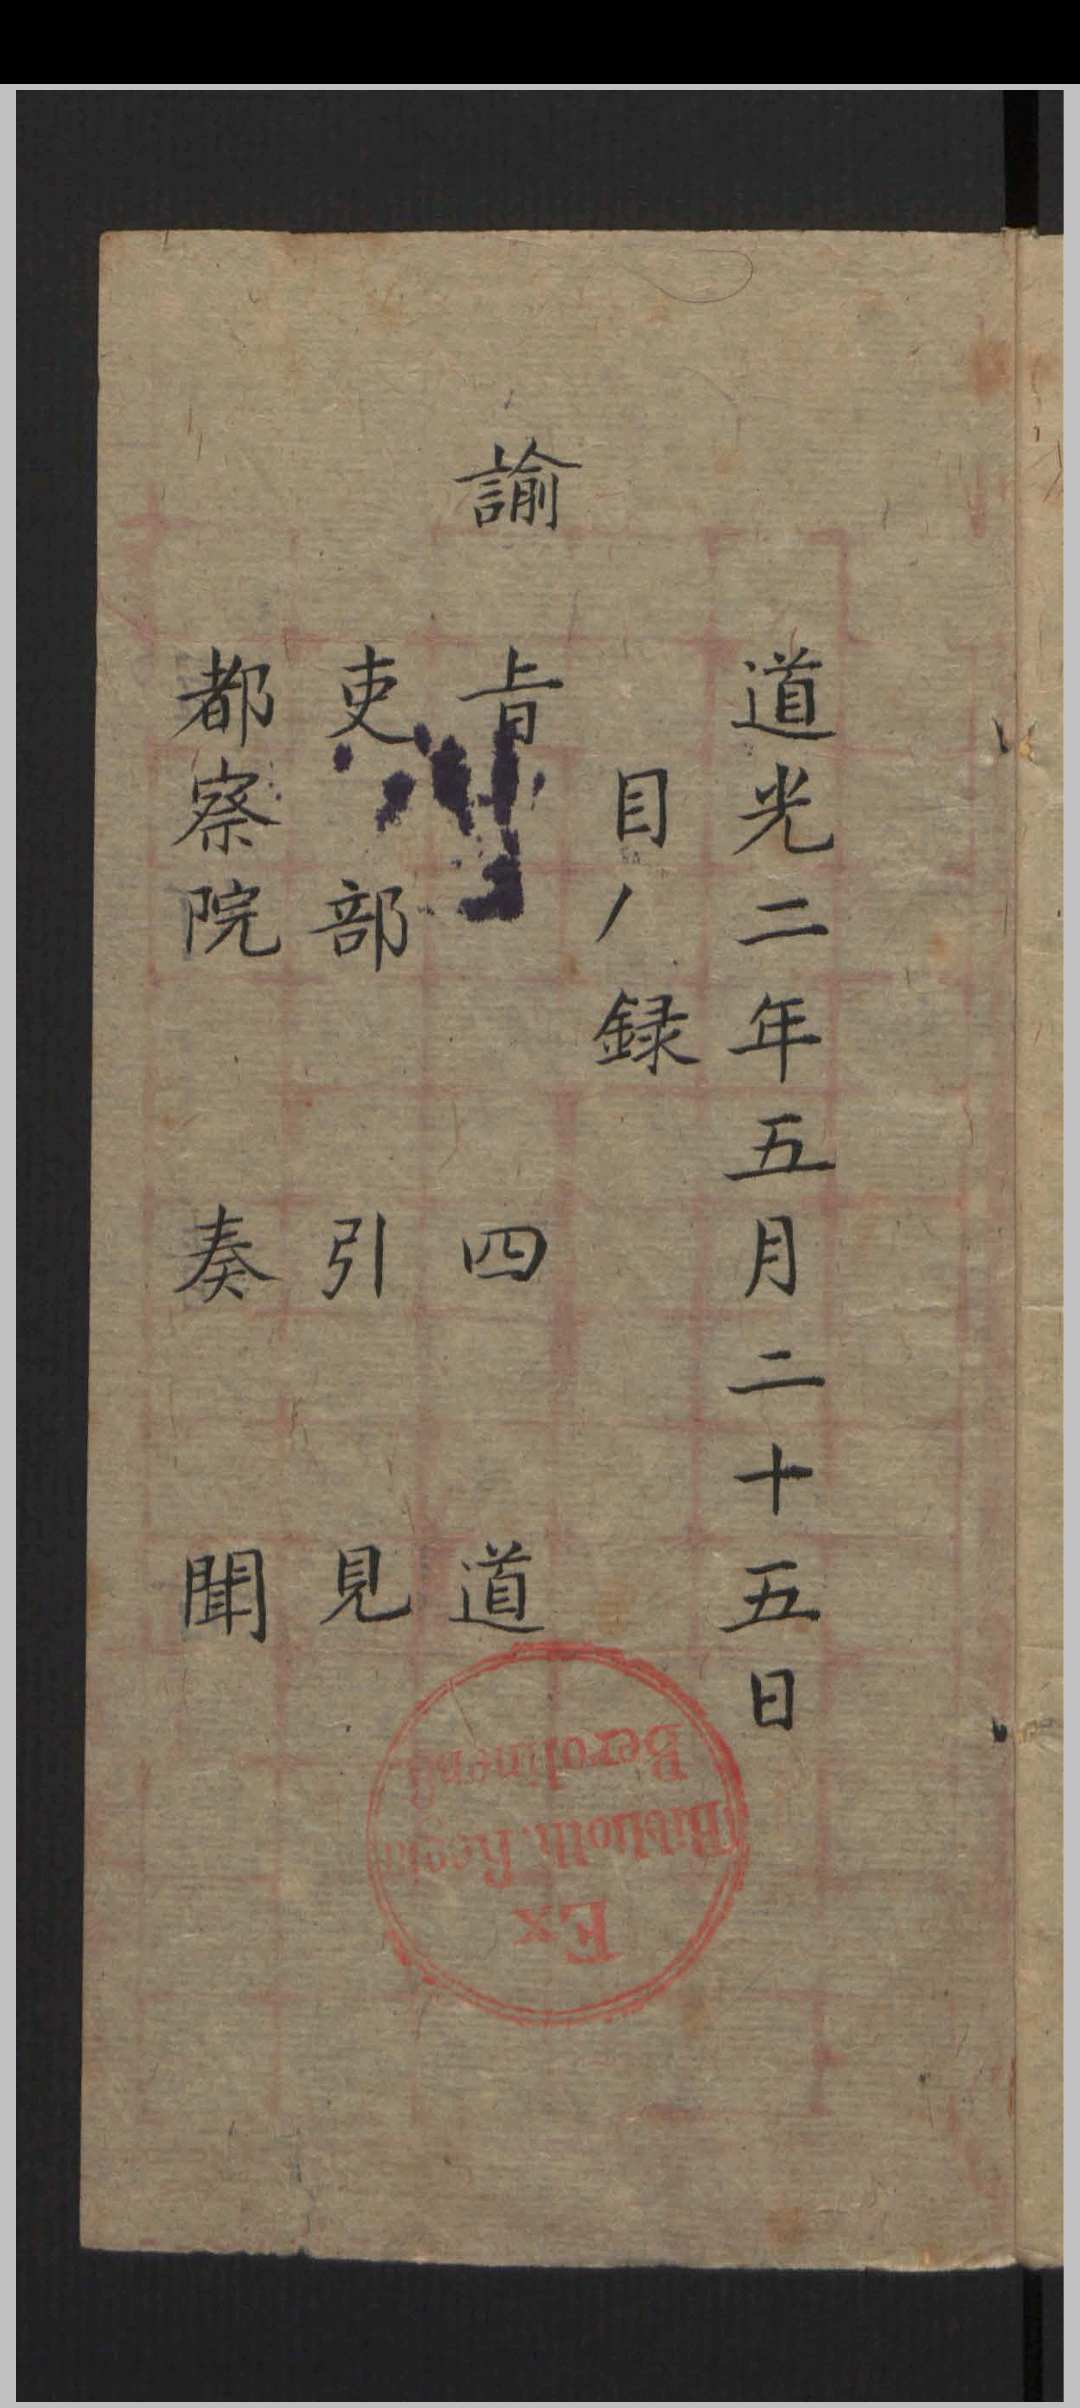 道光二年五月二十五日
目錄
諭旨 四道
吏部 引見
都察院 奏聞
Ex
Biblioth. Regia
Berolinenſi